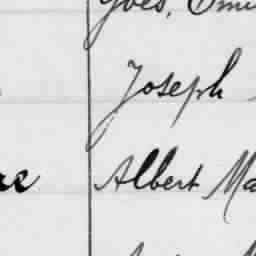 Yves, Emi
Joseph
Albert Ma